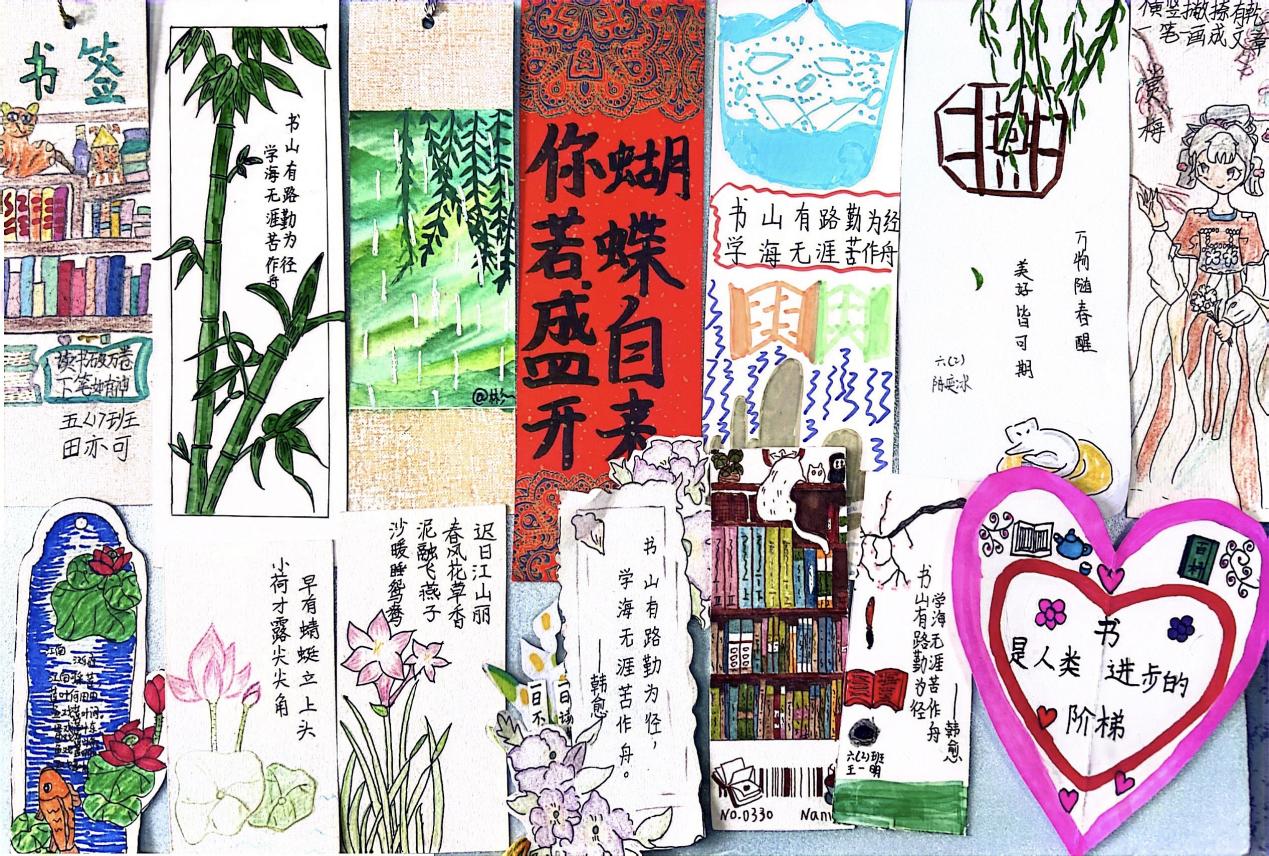 书签
读书破万卷
下笔如有神
五(1)班
田亦可
书山有路勤为径
学海无涯苦作舟
蝴蝶自来
你若盛开
书山有路勤为经
学海无涯苦作舟
万物随春醒
美好皆可期
六.(2)
横竖撇捺有乾
笔一画成文章
早有蜻蜓立上头
小荷才露尖尖角
迟日江山丽
春风花草香
泥融飞燕子
沙暖睡鸳鸯
书山有路勤为径，
学海无涯苦作舟。
——韩愈
NO.0330
学海无涯苦作舟
书山有路勤为径
——韩愈
六(2)班
王一明
百科
书
是人类进步的
阶梯